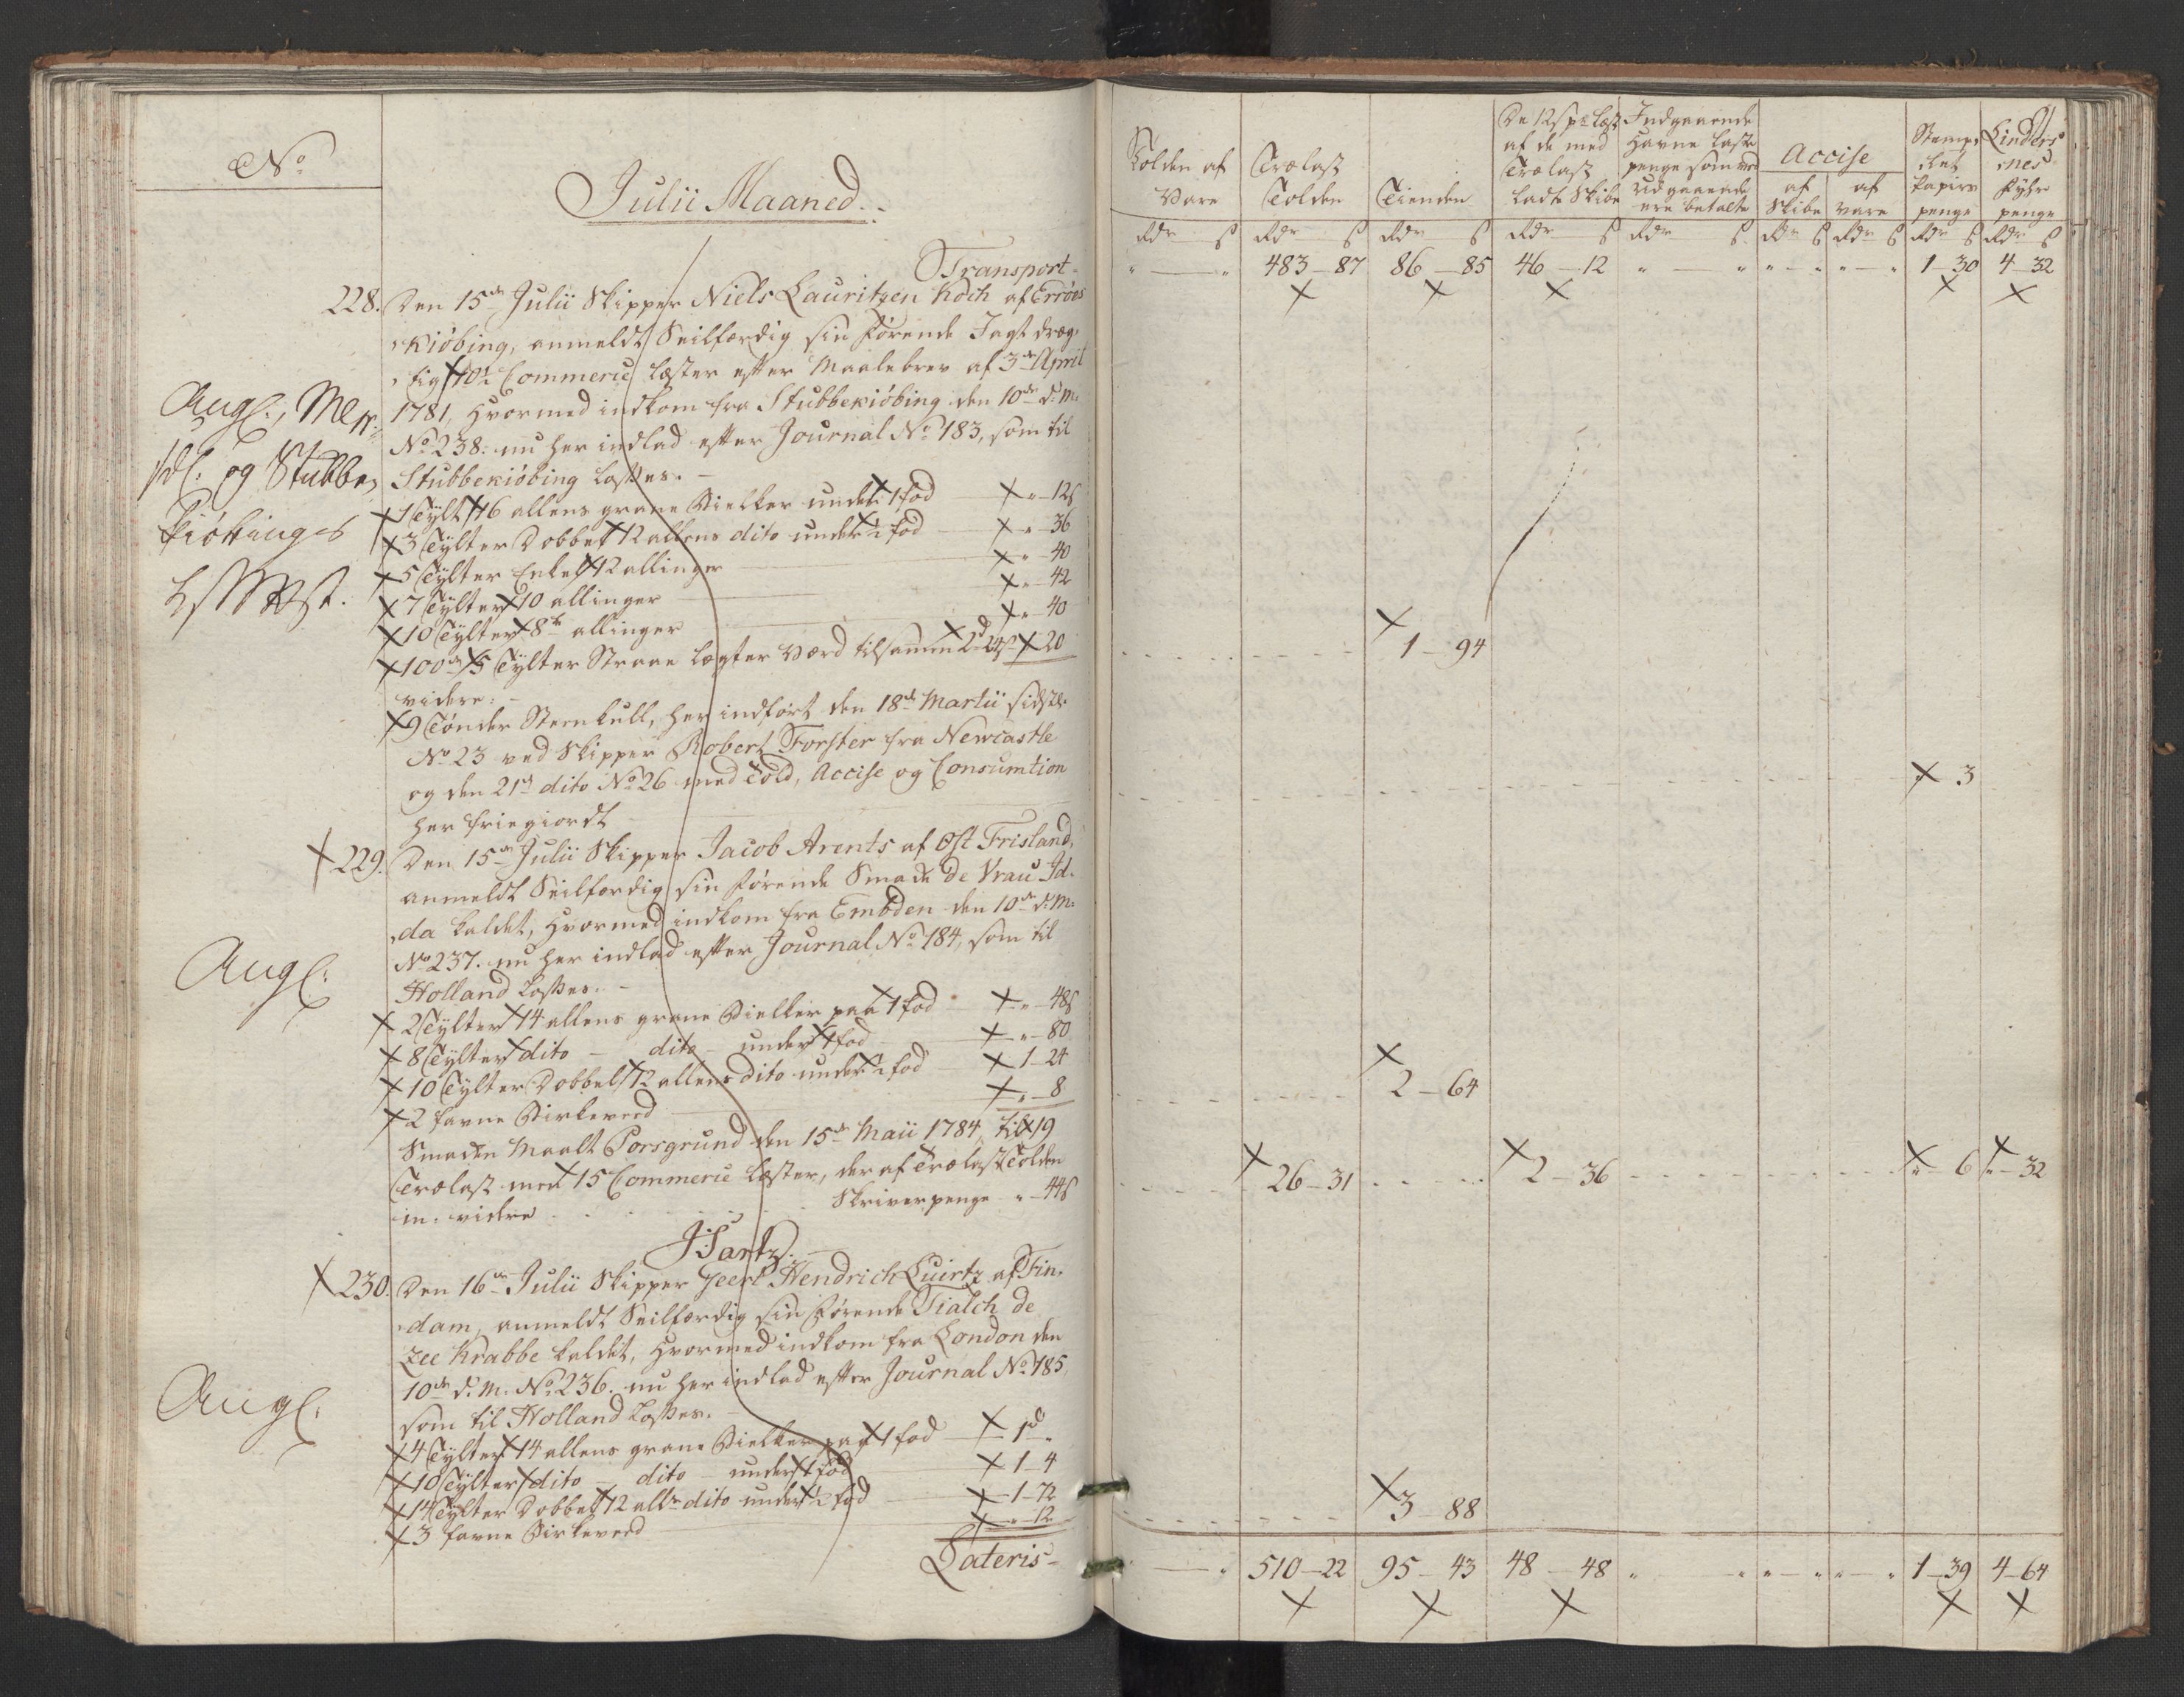 No
Julii Maaned.
Transport
228. Den 15de Julii Skipper Niels Lauritzen Koch af Erröes
kiöbing, anmeldt Seilfærdig sin förende Jagt dræg
tig 10½ Commerce Læster efter Maalebrev af 3de April
1781, hvormed indkom fra Stubbekiöbing den 10de d: M:
No 238: nu her indlad efter Journal No 183, som til
Stubbekiöbing losses.
1 Tylt 16 allens grane Dielker under 1 fod " 12 s
3 Tylter Dobbelt 12 allens dito under 1 fod " 36
5 Tylter Enkelt 12 allinger " 40
7 Tylter 10 allinger " 42
10 Tylter 8te allinger " 40
100de 5 Tylter Straae Legter værd tilsammen 2d 24s 20
videre:
9 Tönder Steenkull, her indfört den 18de Martii sidste
No 23 ved Skipper Robert Forster fra Newcastle
og den 21de dito No 26 med Told, Accise og Consumtion
her friegiordt
Angl:
og Stubbe
kiöbings
229. Den 15de Julii Skipper Jacob Arents af Øst Frisland,
anmeldt Seilfærdig sin förende Smack de Vrau Id
da kaldet, hvormed indkom fra Embden den 10de d: M:
No 237. nu her indlad efter Journal No 184, som til
Holland losses.
2 Tylter 14 allens grane Dielker paa 1 fod " 48 s
8 Tylter dito dito under 1 fod " 80
10 Tylter Dobbelt 12 allens dito under 1 fod 1 24
2 favne Birkeveed " 8
Smacken Maalt Porsgrund den 15de Maii 1784, til 19
Trælast med 15 Commerce Læster, der af Trælast Tolden
m: videre Skriverpenge " 44 s
Angl:
230. Den 16de Julii Skipper Geert Hendrich Luirtz af Fin
dam, anmeldt Seilfærdig sin förende Tialch de
Zee Krabbe kaldet, hvormed indkom fra London den
10de d: M: No 236. nu her indlad efter Journal No 185,
som til Holland losses.
4 Tylter 14 allens grane Dielker paa 1 fod 1d "
10 Tylter dito dito under 1 fod 1 4
14 Tylter Dobbelt 12 allr dito under 1 fod 1 72
3 favne Birkeveed " 12
Angl:
Lateris
Tolden af Vare
Trælast Tolden
Tienden
De 12 s pr Læst af de med Trælast ladte Skibe
Indgaaende Havne laste penge som ved udgaaende ere betalte
Accise
af Skibe
af vare
Stemp let Papiirs penge
Linders nes Fyhr penge
Rdr s Rdr s Rdr s Rdr s Rdr s Rdr s Rdr s Rdr s Rdr s
" " 483 87 86 85 46 12 " " " " " " 1 30 4 32
1 94
" 3
2 64
26 31 2 36 " 6 " 32
3 88
" 510 22 95 43 48 48 " " " " " " 1 39 4 64